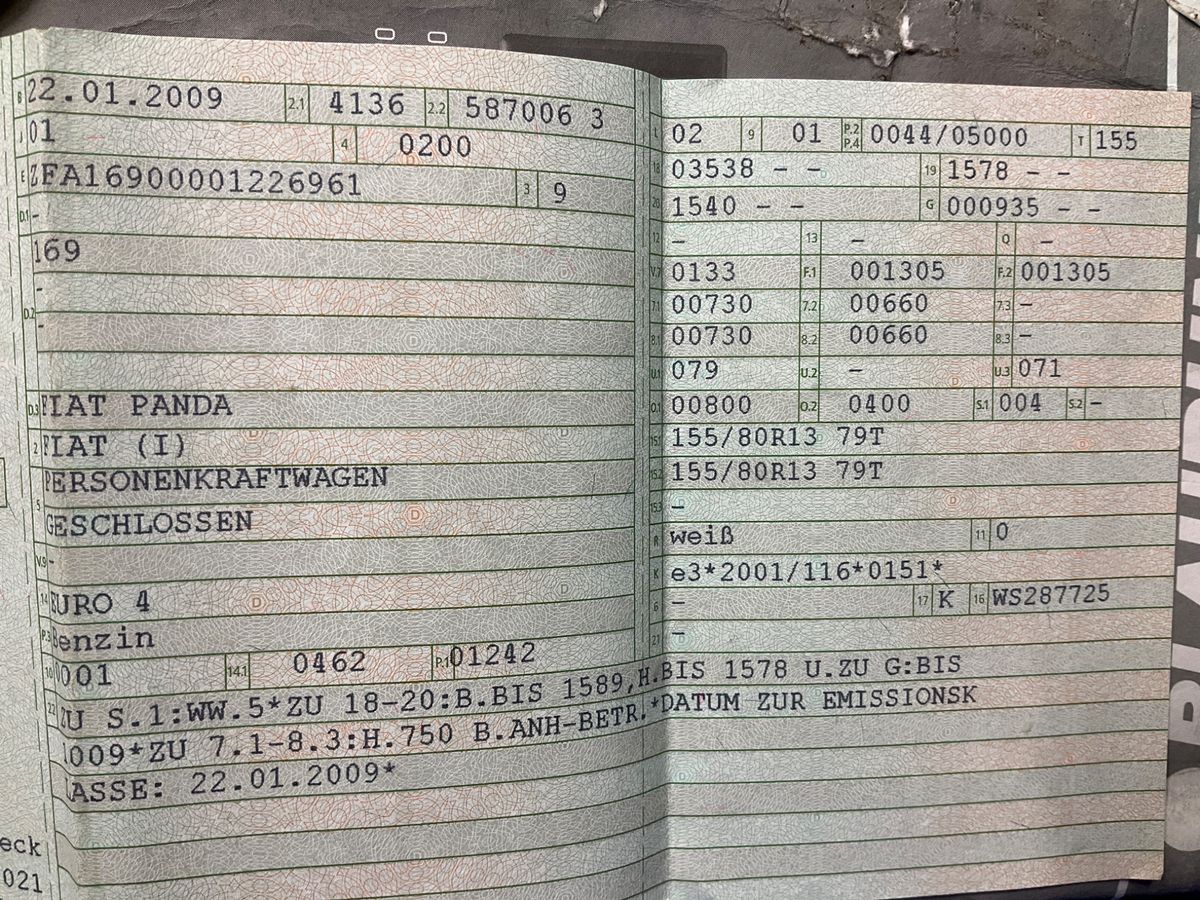 B 22.01.2009 2.1 4136 2.2 587006 3
J 01 4 0200
E ZFA16900001226961 3 9
D.1 -
169
-
D.2
-
D.3 FIAT PANDA
2 FIAT (I)
PERSONENKRAFTWAGEN
5
GESCHLOSSEN
V.9 -
14 EURO 4
P.3 Benzin
10 0001 14.1 0462 P.1 01242
L 02 9 01 P.2 P.4 0044/05000 T 155
18 03538 - - 19 1578 - -
20 1540 - - G 000935 - -
12 - 13 - Q -
V.7 0133 F.1 001305 F.2 001305
7.1 00730 7.2 00660 7.3 -
8.1 00730 8.2 00660 8.3 -
U.1 079 U.2 - U.3 071
O.1 00800 O.2 0400 S.1 004 S.2 -
15.1 155/80R13 79T
15.2 155/80R13 79T
15.3 -
R weiß 11 0
K e3*2001/116*0151*
6 - 17 K 16 WS287725
21 -
22 ZU S.1:WW.5*ZU 18-20:B.BIS 1589,H.BIS 1578 U.ZU G:BIS
1009*ZU 7.1-8.3:H.750 B.ANH-BETR.*DATUM ZUR EMISSIONSK
LASSE: 22.01.2009*
eck
021